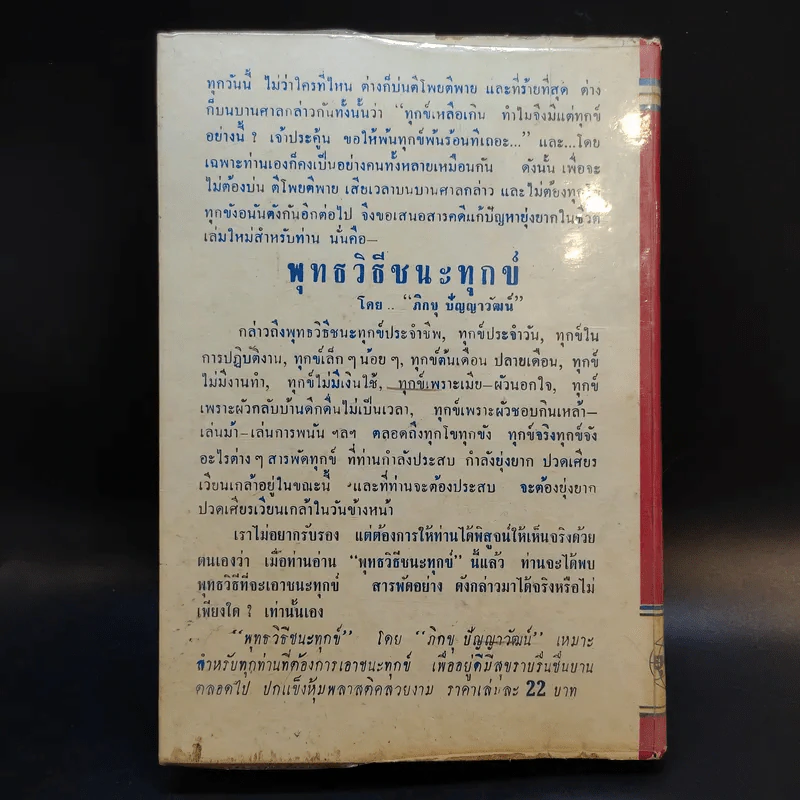 ทุกวันนี้ ไม่ว่าใครที่ไหน ต่างก็บ่นตีโพยตีพาย และที่ร้ายที่สุด ต่าง
ก็บนบานศาลกล่าวกันทั้งนั้นว่า “ทุกข์เหลือเกิน ทำไมจึงมีแต่ทุกข์
อย่างนี้ ? เจ้าประคู้น ขอให้พ้นทุกข์พ้นร้อนทีเถอะ...” และ...โดย
เฉพาะท่านเองก็คงเป็นอย่างคนทั้งหลายเหมือนกัน ดังนั้น เพื่อจะ
ไม่ต้องบ่น ตีโพยตีพาย เสียเวลาบนบานศาลกล่าว และไม่ต้องทุกโข
ทุกขังอนันตังกันอีกต่อไป จึงขอเสนอสารคดีแก้ปัญหายุ่งยากในชีวิต
เล่มใหม่สำหรับท่าน นั่นคือ—
พุทธวิธีชนะทุกข์
โดย .. “ภิกขุ ปัญญาวัฒน์”
กล่าวถึงพุทธวิธีชนะทุกข์ประจำชีพ, ทุกข์ประจำวัน, ทุกข์ใน
การปฏิบัติงาน, ทุกข์เล็ก ๆ น้อย ๆ, ทุกข์ต้นเดือน ปลายเดือน, ทุกข์
ไม่มีงานทำ, ทุกข์ไม่มีเงินใช้, ทุกข์เพราะเมีย—ผัวนอกใจ, ทุกข์
เพราะผัวกลับบ้านดึกดื่นไม่เป็นเวลา, ทุกข์เพราะผัวชอบกินเหล้า—
เล่นม้า—เล่นการพนัน ฯลฯ ตลอดถึงทุกโขทุกขัง ทุกข์จริงทุกข์จัง
อะไรต่าง ๆ สารพัดทุกข์ ที่ท่านกำลังประสบ กำลังยุ่งยาก ปวดเศียร
เวียนเกล้าอยู่ในขณะนี้ และที่ท่านจะต้องประสบ จะต้องยุ่งยาก
ปวดเศียรเวียนเกล้าในวันข้างหน้า
เราไม่อยากรับรอง แต่ต้องการให้ท่านได้พิสูจน์ให้เห็นจริงด้วย
ตนเองว่า เมื่อท่านอ่าน “พุทธวิธีชนะทุกข์” นี้แล้ว ท่านจะได้พบ
พุทธวิธีที่จะเอาชนะทุกข์ สารพัดอย่าง ดังกล่าวมาได้จริงหรือไม่
เพียงใด ? เท่านั้นเอง
“พุทธวิธีชนะทุกข์” โดย “ภิกขุ ปัญญาวัฒน์” เหมาะ
สำหรับทุกท่านที่ต้องการเอาชนะทุกข์ เพื่ออยู่ดีมีสุขราบรื่นชื่นบาน
ตลอดไป ปกแข็งหุ้มพลาสติคสวยงาม ราคาเล่มละ 22 บาท